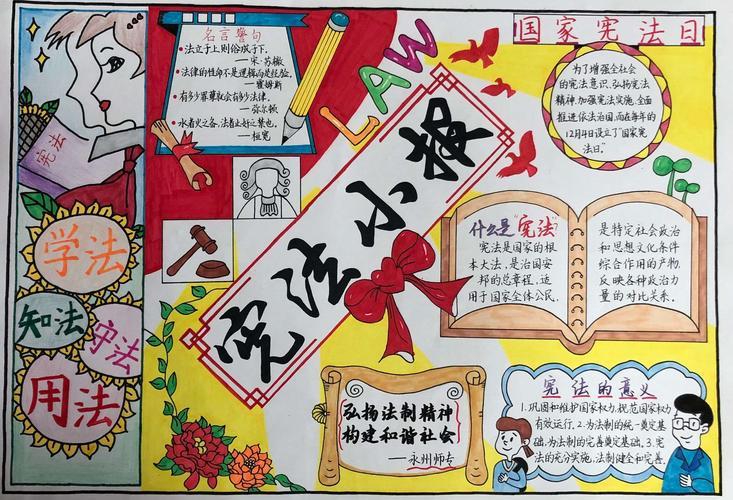 名言警句
法立于上则俗成于下.
—宋·苏辙
法律的性命不是逻辑而是经验.
—霍姆斯
有多少罪孽取会有多少法律.
—弥尔顿
水者火之备,法者止奸之禁也.
—桓宽
LAW
国家宪法日
为了增强全社会
的宪法意识,弘扬宪法
精神,加强宪法实施,全面
推进依法治国,而在每年的
12月4日设立了“国家宪
法日”
宪法
学法
知法
守法
用法
宪法小报
什么是“宪法”?
宪法是国家的根
本大法,是治国安
邦的总章程,适
用于国家全体公民.
是特定社会政治
和思想文化条件
综合作用的产物,
反映各种政治力
量的对比关系.
弘扬法制精神
构建和谐社会
—永州师专
宪法的意义
1.巩固和维护国家权力,规范国家权力
有效运行,2.为法制的统一奠定基
础,为法制的完善奠定基础.3.宪
法的充分实施,法制健全和完善.